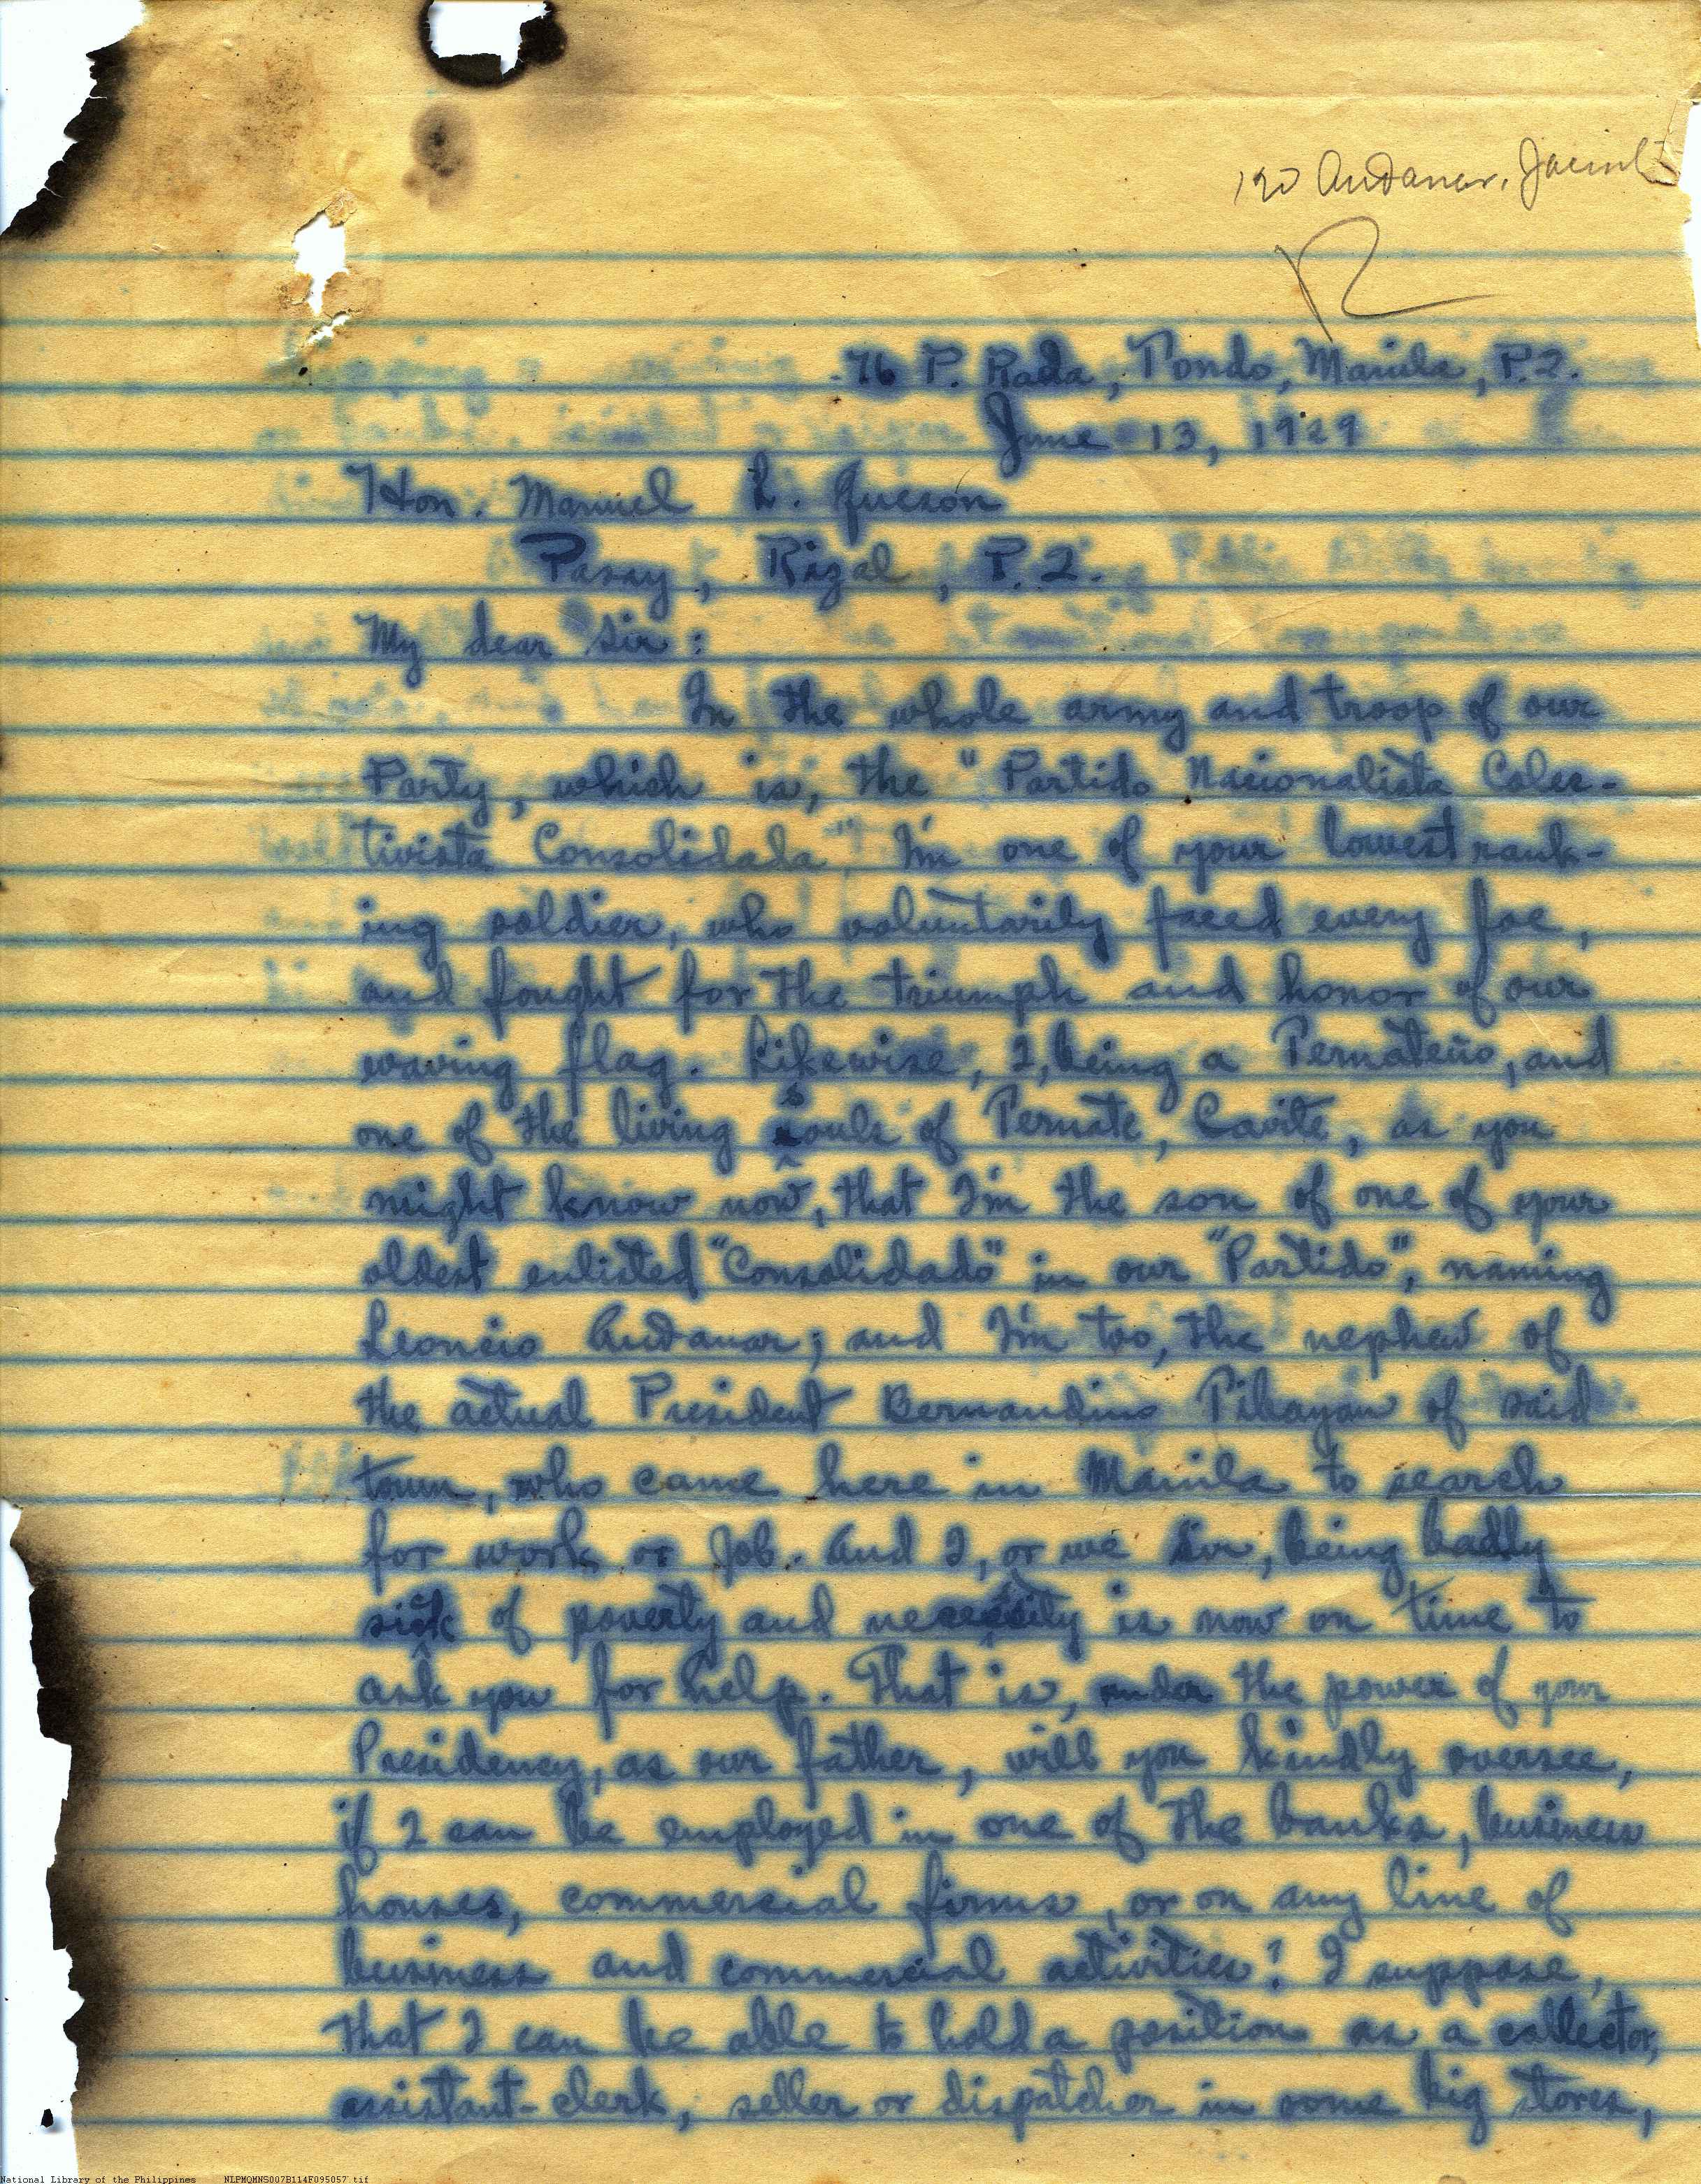 Andanar, Jacint
R
76 P. Rada, Tondo, Manila, P.I.
June 13, 1929
Hon. Manuel L. Quezon
Pasay, Rizal, P.I.
My dear Sir:
In the whole army and troop of our
Party, which is, the "Partido Nacionalista Colec-
tivista Consolidada" I'm one of your lowest rank-
ing soldier, who voluntarily faced every foe,
and fought for the triumph and honor of our
waving flag. Likewise, I, being a Ternateño, and
one of the living souls of Ternate, Cavite, as you
might know now, that I'm the son of one of your
oldest enlisted "Consolidado" in our "Partido", naming
Leoncio Andanar; and I'm too, the nephew of
the actual President Bernandino Pibayan of said
town, who came here in Manila to search
for work or Job. And I, or we Sir, being badly
sick of poverty and necessity is now on time to
ask you for help. That is, under the power of your
Presidency, as our father, will you kindly oversee,
if I can be employed in one of the banks, business
houses, commercial firms, or on any line of
business and commercial activities? I suppose,
that I can be able to hold a position as a collector,
assistant-clerk, seller or dispatcher in some big stores,
National Library of the Philippines NLPMQMNS007B114F095057.tif